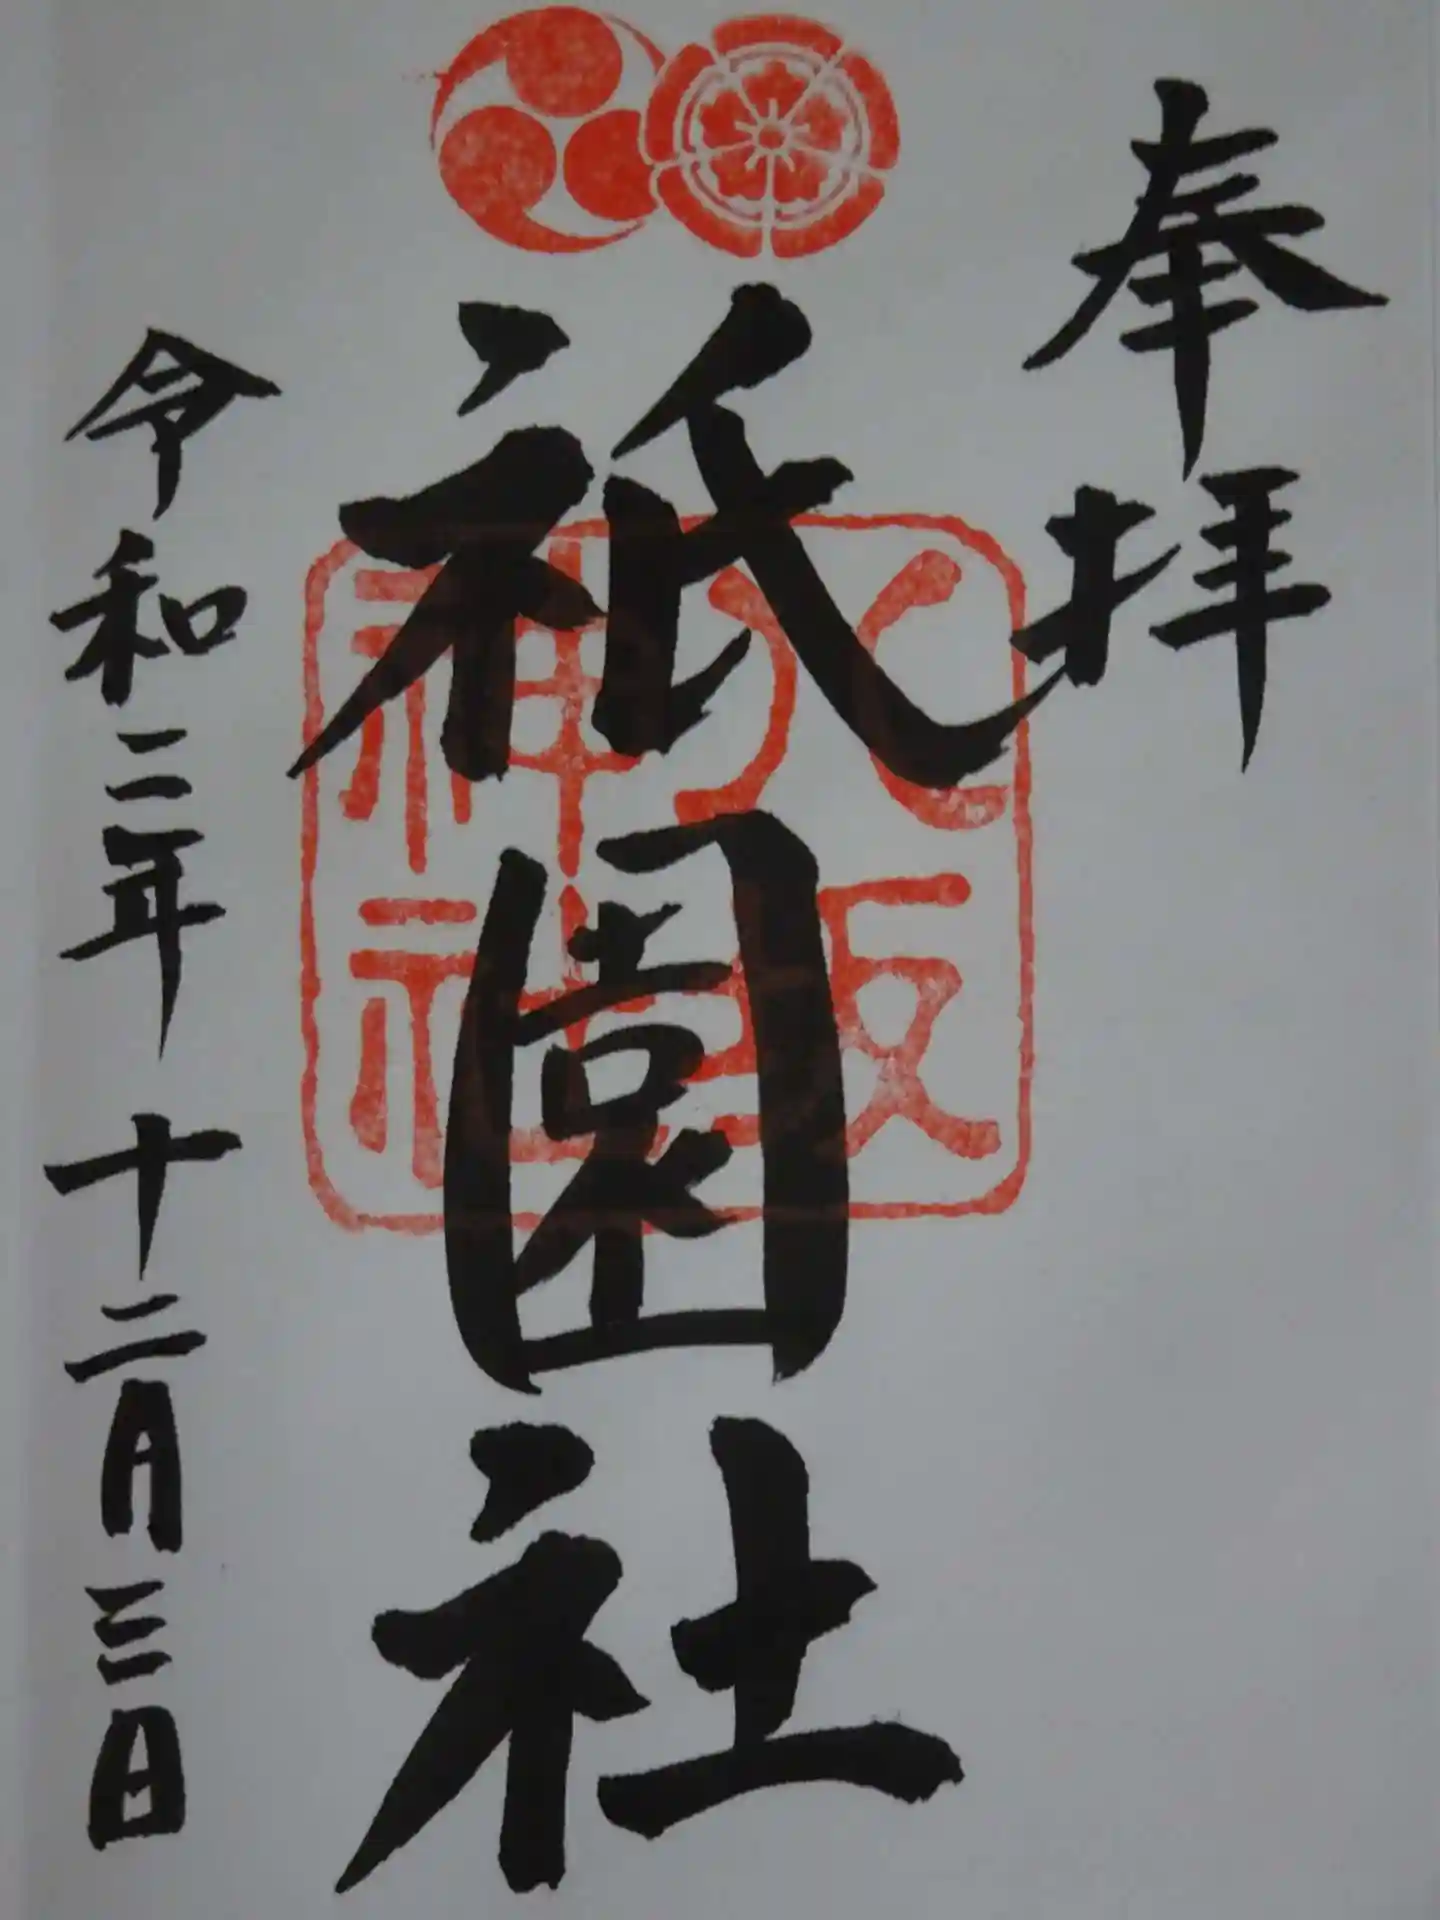 奉拝
祇園社
八坂神社
令和二年 十二月三日